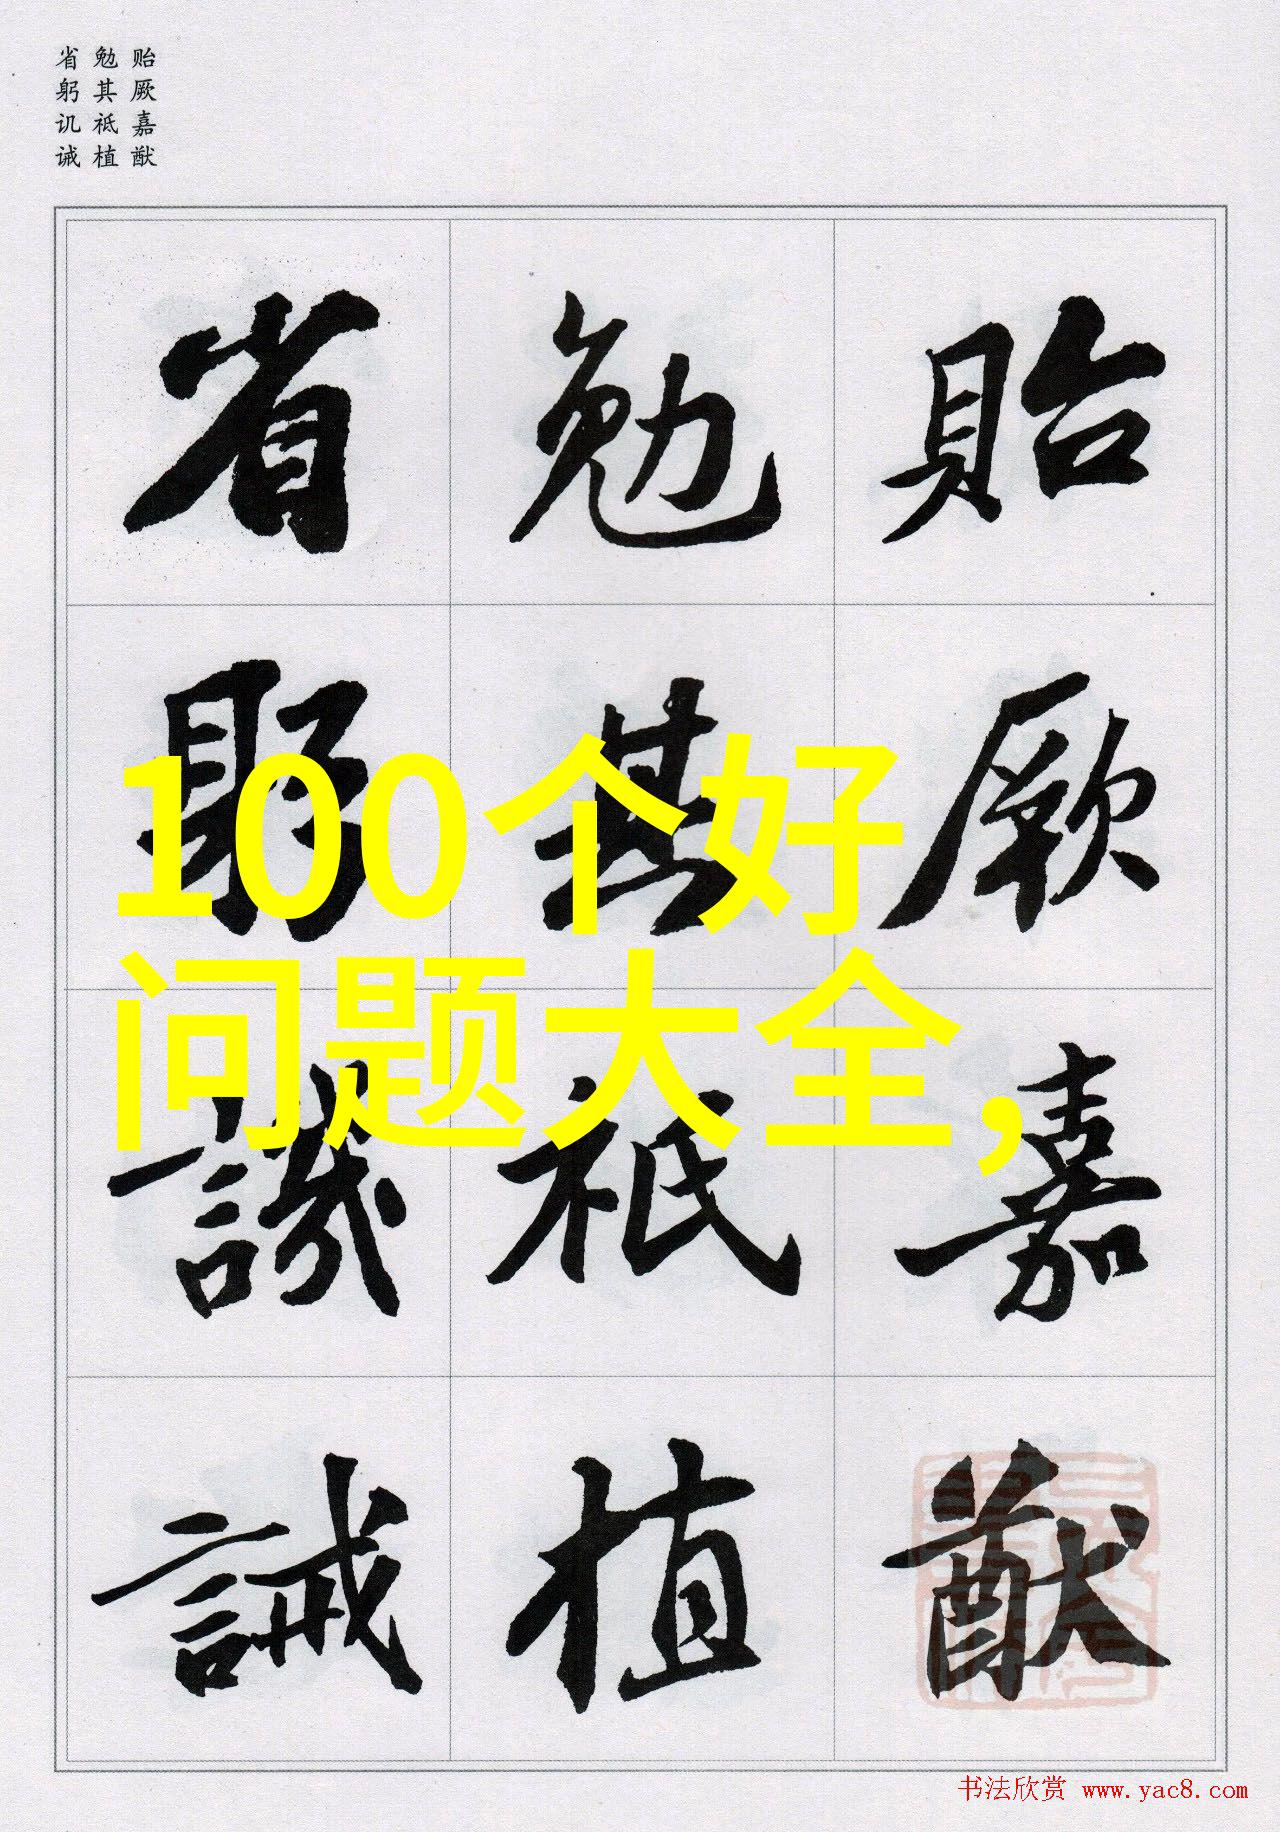 省 勉 贻
躬 其 厥
讥 祗 嘉
诫 植 猷
省 勉 貽
躬 其 厥
譏 祗 嘉
誡 植 猷
100个好
问题大全,
书法欣赏 www.yac8.com